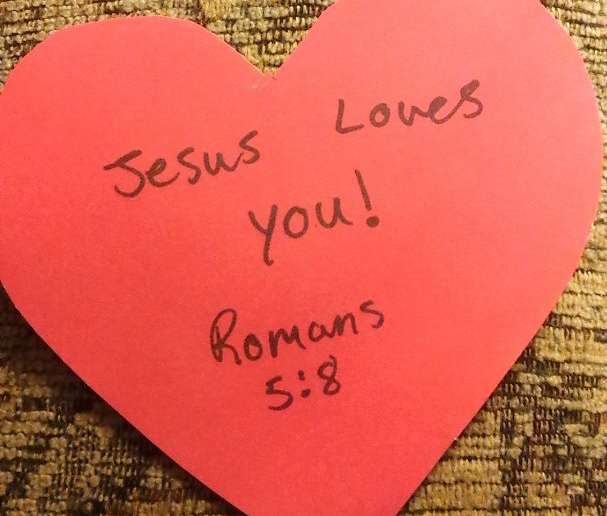 Jesus Loves
you!
Romans
5:8